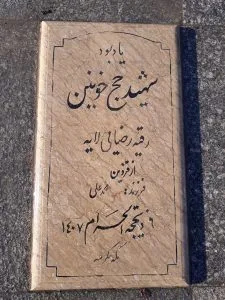 یادبود
شهید حج خونین
رقیه رضائی لایه
از قزوین
فرزند
۶ ذیحجه الحرام ۱۴۰۷
مکه مکرمه